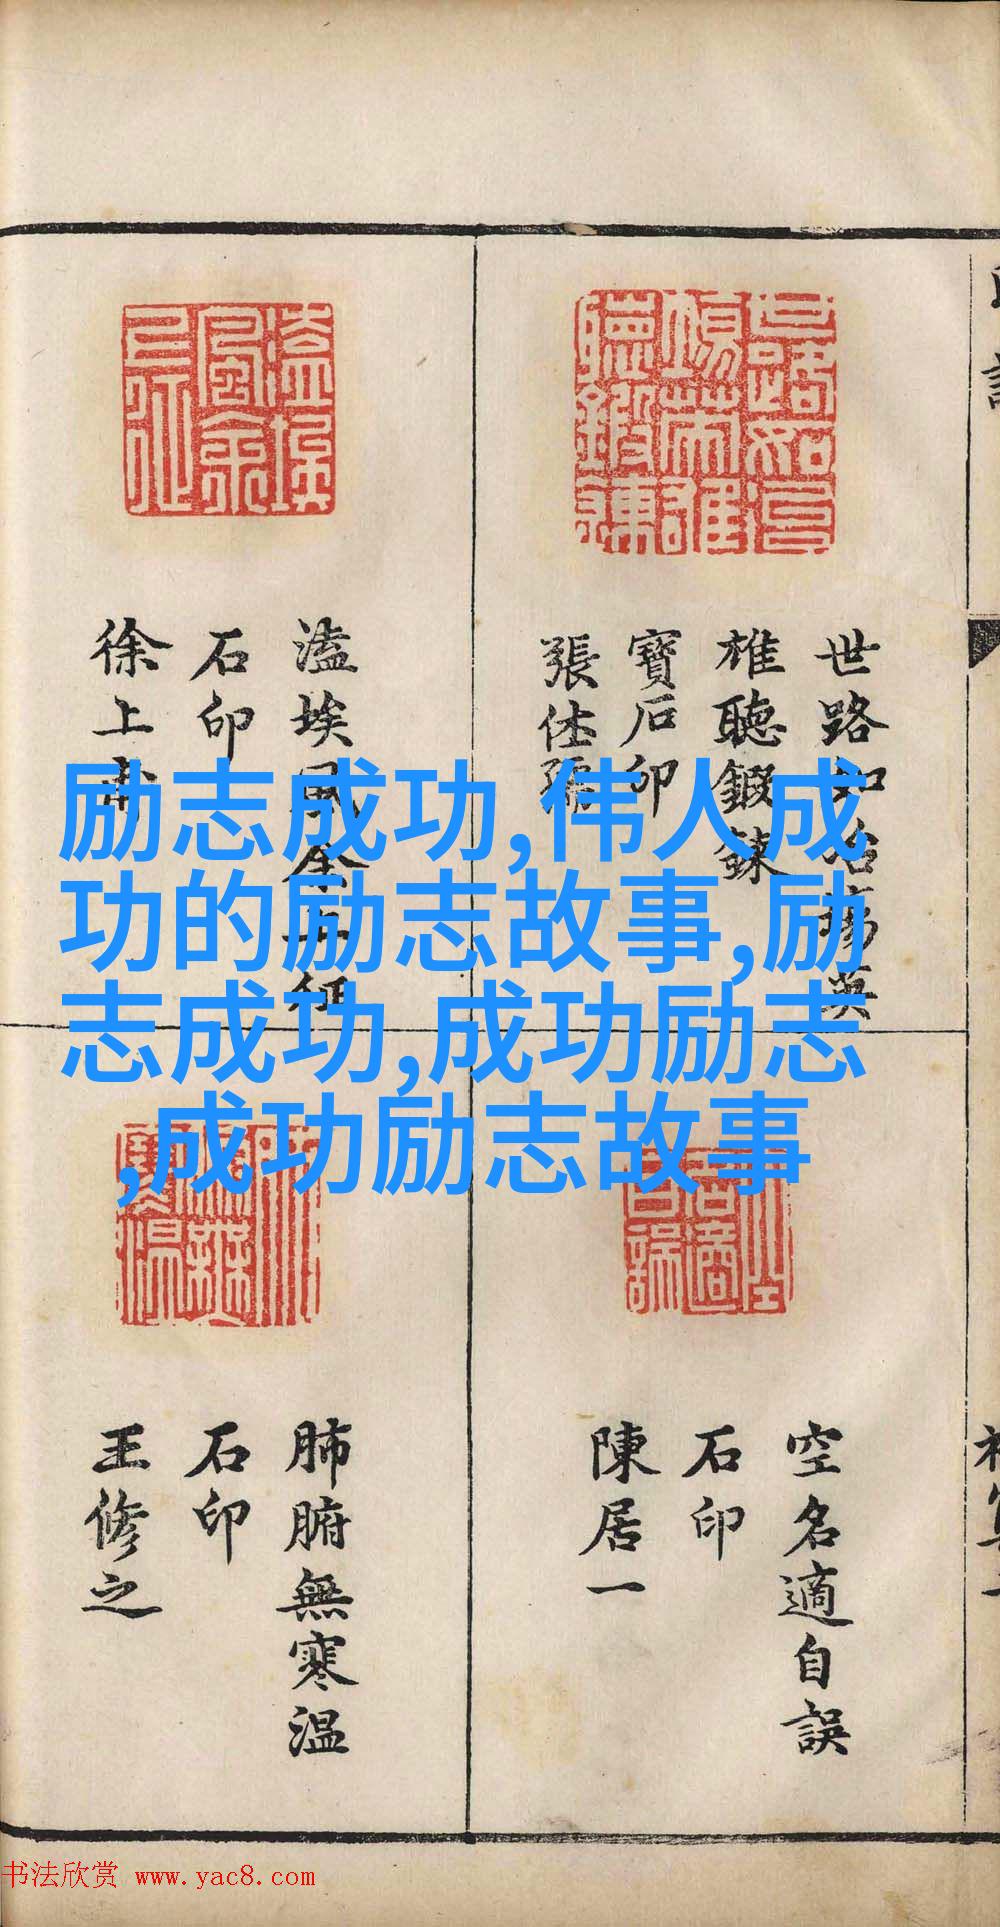 世路如冶場英
雄聽鍛鍊
寶石印
張仕
溘埃風余上征
石印
徐上
励志成功,伟人成
功的励志故事,励
志成功,成功励志
,成功励志故事
空名適自誤
石印
陳居一
肺腑無寒温
石印
王修之
书法欣赏 www.yac8.com